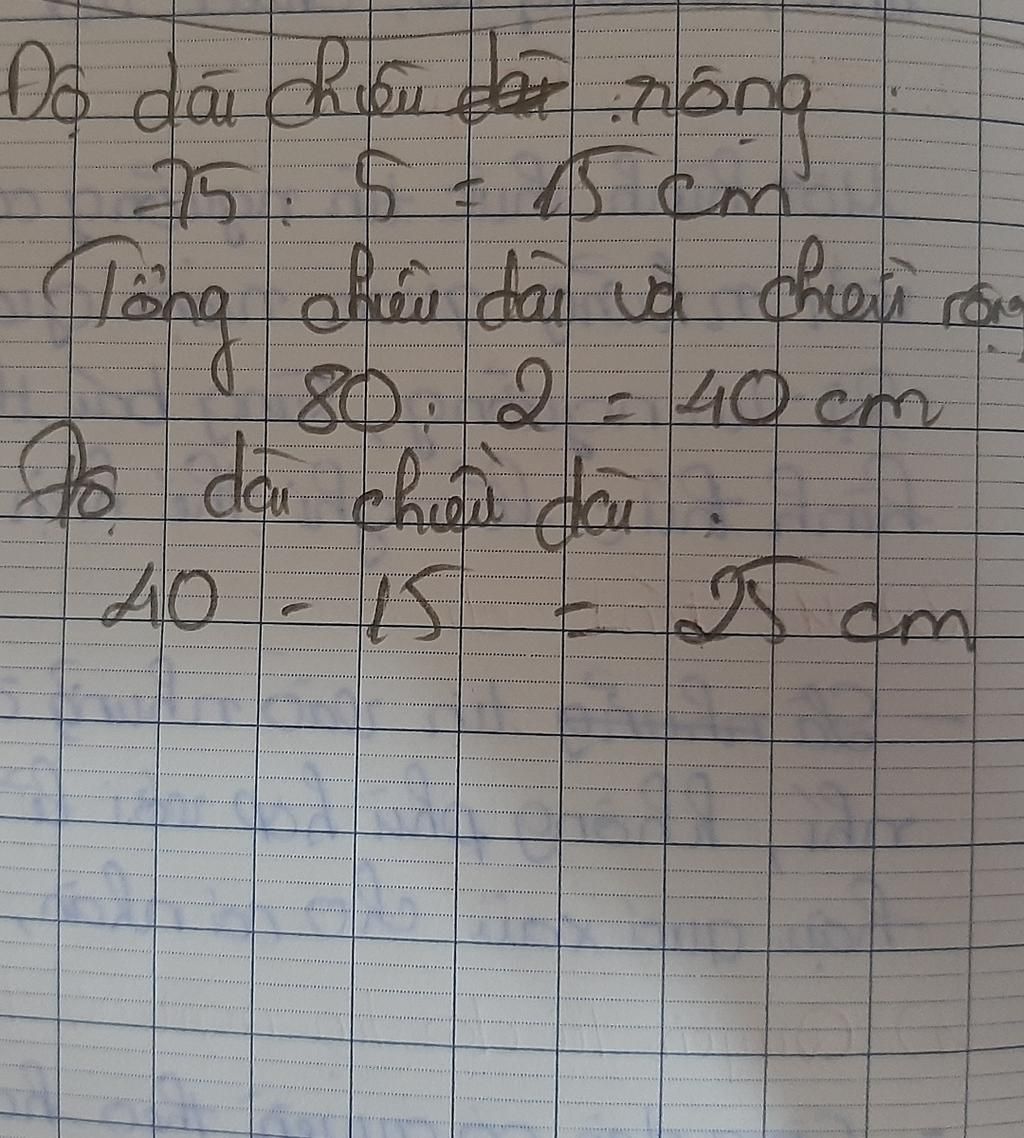 Độ dài chiều rộng:
75 : 5 = 15 cm
Tổng chiều dài và chiều rộng
80 : 2 = 40 cm
Độ dài chiều dài :
40 - 15 = 25 cm